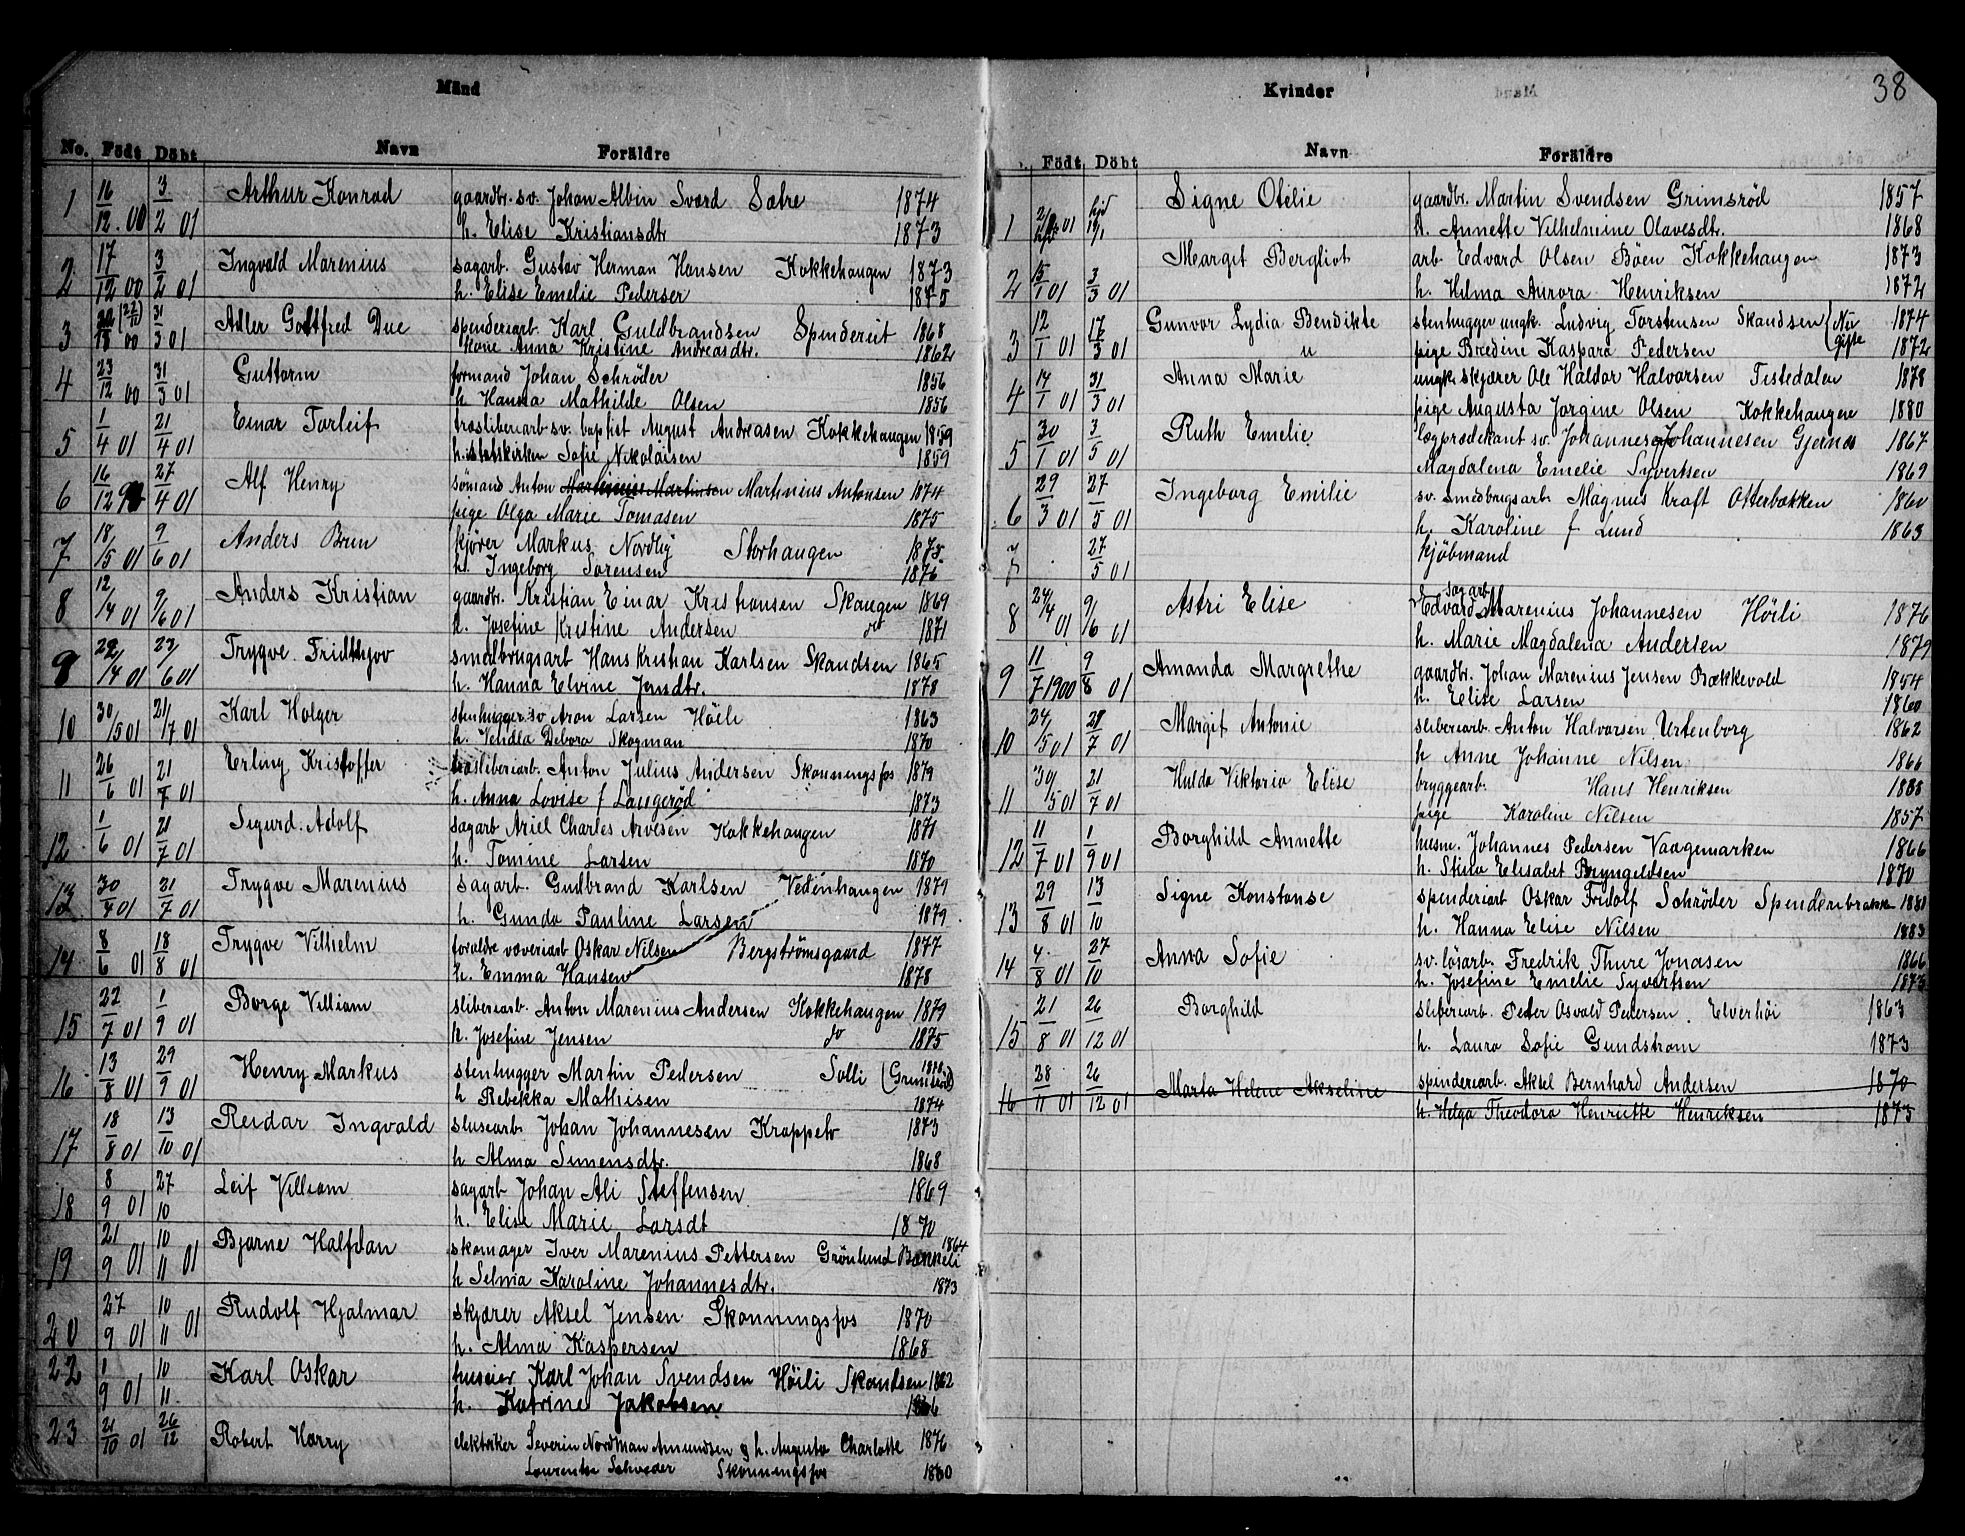 Mänd
No. Födt Döbt Navn Foräldre
1 16/12.00 3/2 01 Arthur Konrad gaardbr. sv. Johan Albin Svärd Sætre 1874
h. Elise Kristiansdtr 1873
2 17/12 00 3/2 01 Ingvald Marenius sagarb. Gustav Herman Hansen Kokkehaugen 1873
h. Elise Emelie Pederser 1875
3 00 31/3 01 Adler Gottfred Due spenderiarb. Karl Guldbrandsen Spenderiet 1868
kone Anna Kristine Andreasdtr. 1862
4 23/12 00 31/3 01 Guttorm formand Johan Schrøder 1856
h Hanna Mathilde Olsen 1856
5 1/4 01 21/4 01 Einar Torleif træsliberiarb. sv. baptist August Andreasen Kokkehaugen 1859
h. i statskirken Sofie Nikolaisen 1859
6 16/12 27/4 01 Alf Henry sømand Anton Martinius Antonsen 1874
pige Olga Marie Tomasen 1875
7 18/5 01 9/6 01 Anders Brun kjører Markus Nordlig Storhaugen 1875
h. Ingeborg Sørensen 1876
8 12/4 01 9/6 01 Anders Kristian gaardbr. Kristian Einar Kristiansen Skaugen 1869
h. Josefine Kristine Andersen do 1871
9 22/4 01 23/6 01 Trygve. Fridthjov smedbrugsarb Hans Kristian Karlsen Skandsen 1865
h. Hanna Elvine Jensdtr. 1878
10 30/5 01 21/7 01 Karl Holger stenhugger. sv Aron Larsen Höili 1863
h. Vendla Debora Skogman 1870
11 26/6 01 21/7 01 Erling Kristoffer træsliberiarb. Anton Julius Andersen Skonningsfos 1879
h. Anna Lovise f Laugerød 1873
12 1/6 01 21/7 01 Sigurd. Adolf sagarb Ariel Charles Arvesen Kokkehaugen 1871
h. Tomine Larsen 1870
13 30/4 01 21/7 01 Trygve Marenius sagarb. Gudbrand Karlsen Vedenhaugen 1879
h. Gunda Pauline Larsen 1879
14 8/6 01 18/8 01 Trygve Vilhelm forældre væveriarb Oskar Nilsen Bergstrømsgaard 1877
h. Emma Hansen 1878
15 22/7 01 1/9 01 Borge Villiam sliberiarb. Anton Marenius Andersen Kokkehaugen 1879
h. Josefine Jensen do 1875
16 13/8 01 29/9 01 Henry Markus stenhugger Martin Pedersen Solli (Grimsröd)
h Rebekka Mathisen 1874
17 18/8 01 13/10 01 Reidar Ingvald sluse arb. Johan Johannesen Krappeto 1873
h Alma Simensdtr. 1868
18 8/9 01 27/10 Leif Villiam sagarb Johan Ali Steffensen 1869
h. Elise Marie Larsdt 1870
19 21/9 01 10/11 01 Bjarne Halfdan skomager Iver Marenius Pettersen Grönlund Bækkeli 1864
h Selma Karoline Johannesdtr. 1873
20 27/9 01 10/11 01 Rudolf Hjalmar skjærer Aksel Jensen Skonningsfos 1870
h. Alma Kaspersen 1868
22 1/9 01 10/11 Karl Oskar huseier Karl Johan Svendsen Höili Skandsen 1862
h. Katrine Jakobsen 1866
23 21/10 01 26/12 Robert Harry elektriker Severin Nordman Amundsen g h. Augusta Charlotte 1876
Laurentse Schrøder Skonningsfos 1860
Kvinder
38
Födt Döbt Navn Foräldre
1 01 Signe Otelie gaardbr. Martin Svendsen Grimsröd 1857
h. Annette Vilhelmine Olavesdtr. 1868
2 15/1 01 3/3 01 Margit Bergliot arb Edvard Olsen Böen Kokkehaugen 1873
h. Hilma Aurora Henriksen 1872
3 12/1 01 17/3 01 Gunvor Lydia Bendikte stenhugger ungk. Ludvig Torstensen Skandsen (Nu gifte 1874
u pige Bredine Kaspara Pedersen 1872
4 14/1 01 31/3 01 Anna Marie ungk. skjærer Ole Haldor Halvorsen Tistedalen 1878
pige Augusta Jorgine Olsen Kokkehaugene 1880
5 30/1 01 3/5 01 Ruth Emelie lægprædikant sv. Johannes Johannesen Gjernæs 1867
Magdalena Emelie Syvertsen 1869
6 29/3 01 27/5 01 Ingeborg Emilie sv. smedbrugsarb. Magnus Kraft Otterbækken 1860
h. Karoline f Lund 1863
7 27/5 01 kjöbmand
8 24/4 01 9/6 01 Astri Elise sagarb Edvard Marenius Johannesen Höili 1876
h. Marie Magdalena Andersen 1879
9 11/7 1900 9/8 01 Amanda Margrethe gaardbr. Johan Marenius Jensen Bækkevold 1854
h. Elise Larsen 1860
10 24/5 01 21/7 01 Margit Antonie sliberiarb. Anton Halvorsen Urtenborg 1862
h Anne Johanne Nilsen 1866
11 30/5 01 21/7 01 Hulda Viktoria Elise bryggearb. Hans Henriksen 1888
pige Karoline Nilsen 1857
12 11/7 01 1/9 01 Borghild Annette husm. Johannes Pedersen Vaagemarken 1866
h. Elisabet Bryngeldsen 1870
13 29/8 01 13/10 Signe Konstanse spenderiarb Oskar Fridolf Schrøder Spenderibrakken 1881
h. Hanna Elise Nilsen 1883
14 4/8 01 27/10 Anna Sofie sv. lösarb. Fredrik Thure Jonasen 1866
h. Josefine Emelie Syvertsen 1873
15 21/8 01 26/12 01 Borghild sliberiarb. Peder Osvald Pedersen. Elverhöi 1863
h. Laura Sofie Gundstrøm 1873
16 28/11 01 26/12 01 Marta Helene Akseline spinderiarb. Aksel Bernhard Andersen 1870
h. Helga Theodora Henriette Henriksen 1873